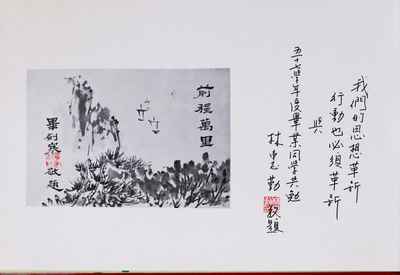 我們的思想革新
行動也必須革新
與
五十七學年度畢業同學共勉
林 勤 敬題
前程萬里
畢劍 敬題